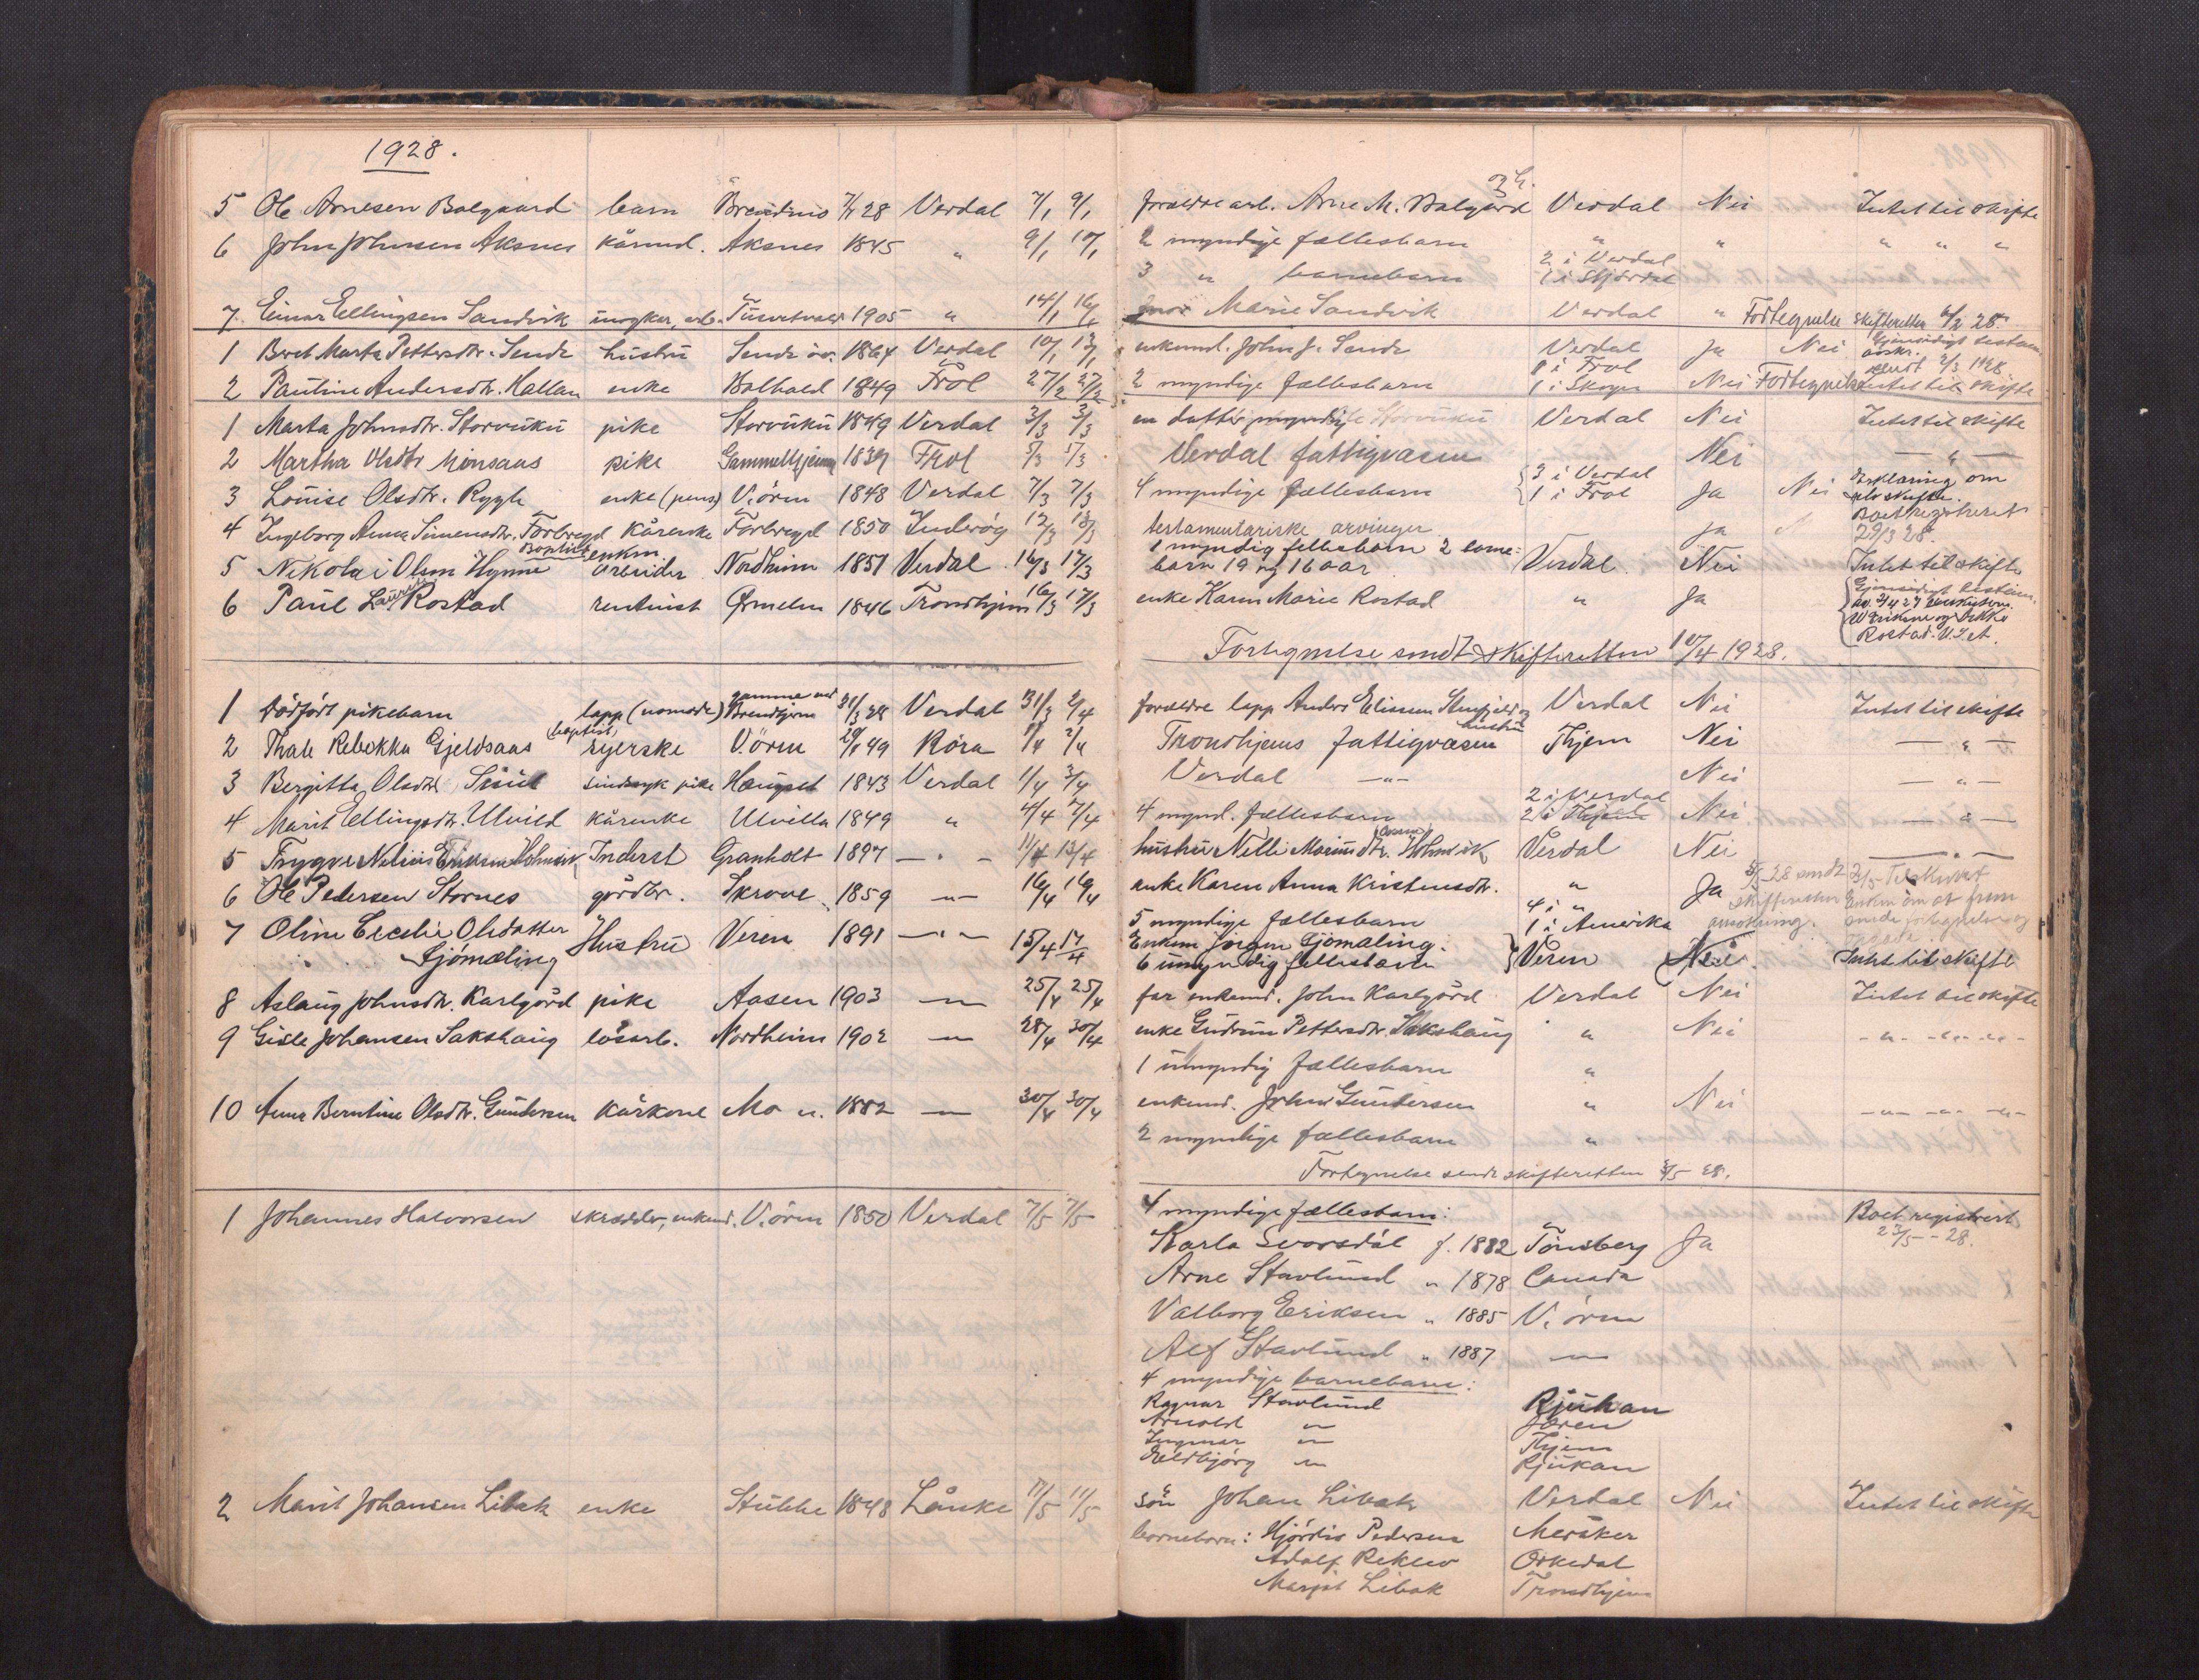 1928.
5 Ole Arnesen Balgaard barn 7/1 28 Verdal 7/1 9/1 forældre arb. Arne M. Balgård og h. Verdal Nei Intet til skifte
6 John Johnsen Aksnes kårmd. Aksnes 1845 " 9/1 10/1 2 myndige fællesbarn " " " " "
3 " barnebarn 2 i Verdal
1 i Stjørdal
7 Einar Ellingsen Sandvik ungkar, arb. 1905 " 14/1 16/1 mor Marie Sandvik Verdal " Fortegnelse skifteretten 6/2 28.
1 Beret Marta Pettersdtr. Sende hustru Sende öv. 1864 Verdal 10/2 13/2 enkemd. John J. Sende Verdal Ja Nei Gjensidigt testam.
sendt 2/3 1928
2 Pauline Andersdtr. Hallan enke 1849 Frol 27/2 27/2 2 myndige fællesbarn 1 i Frol
1 i Skogn Nei Fortegnelse Intet til skifte
1 Marta Johnsdtr. Storvuku pike Storvuku 1849 Verdal 3/3 3/3 en datter Storvuku Verdal Nei Intet til skifte
2 Martha Olsdtr Minsaas pike Gammelhjem 1839 Frol Verdal fattigvæsen Nei — " —
3 Louise Olsdtr. Rygh enke (pens) V.ören 1848 Verdal 7/3 7/3 4 myndige fællesbarn 3 i Verdal
1 i Frol Ja Nei Erklæring om
selvskifte.
4 Ingeborg Anna Simensdtr. Forbregd Kårenke Forbregd 1850 Inderøy 12/3 18/3 testamentariske arvinger Ja Boet registreret
29/3 28.
5 Nikolai Olsen Hynne Baptist enkm. arbeider Nordheim 1851 Verdal 16/3 17/3 1 myndig fellesbarn 2 barne=
barn 19 og 16 aar Verdal Nei Intet til skifte
6 Paul Laurits Rostad rentenist Ørmelen 1846 Trondhjem 16/3 17/3 enke Karen Marie Rostad " Ja Gjensidigt testam.
Rostad. U. S. et.
Fortegnelse sendt skifteretten 10/4 1928.
1 Dödfödt pikebarn lapp (nomade) gamme ved 31/3 28 Verdal 31/3 2/4 forældre lapp Anders Elissen og hustru Verdal Nei Intet til skifte
2 Thale Rebekka Gjeldsaas (baptist) syerske V.ören 29/1 49 Röra 1/4 2/4 Trondhjems fattigvæsen Thjem Nei — " —
3 Bergitta Olsdtr sindssyk pike Haugset 1843 Verdal 1/4 3/4 Verdal —"— Nei — " —
4 Marit Ellingsdtr. Ulvild kårenke Ulvilla 1849 " 4/4 7/4 4 mynd. fællesbarn 2 i Verdal
2 i Thjem Nei — " —
5 Trygve Nelius Eriksen Holmvik Inderst Granholt 1897 — " — 11/4 13/4 hustru Nelli Holmvik Verdal Nei — " —
6 Ole Pedersen Stornes gårdbr. Skrove 1859 —"— 16/4 16/4 enke Karen Anna Kristensdtr. " Ja 5/5 28 sendt skifteretten anmodning.
5 myndige fællesbarn 4 i "
1 i Amerika
7 Oline Cecelie Olsdatter
Gjömæling Hustru Veren 1891 —"— 15/4 17/4 Enkem Jørgen Gjömæling.
6 umyndig fellesbarn Veren Nei Intet til skifte
8 Aslaug Johnsdtr. Karlgård pike Aasen 1903 —"— 25/4 25/4 far enkemd. John Karlgård Verdal Nei Intet til skifte
9 Gisle Johansen Sakshaug lösarb. Nordheim 1902 —"— 28/4 30/4 enke Gudrun Pettersdtr. Sakshaug " Nei -"- -"- -"-
1 umyndig fællesbarn "
10 Anna Berntine Olsdtr. Gundersen Kårkone Mo n. 1882 —"— 30/4 30/4 enkemd. John Gundersen " Nei -"- -"- -"-
2 myndige fællesbarn "
Fortegnelse sendt skifteretten 5/5 28.
1 Johannes Halvorsen skrædder, enkemd. V.ören 1850 Verdal 7/5 7/5 4 myndige fællesbarn: Boet registrert
23/5 - 28.
Karla Svorsdal f. 1882 Tönsberg Ja
Arne Stavlund " 1878 Canada
Valborg Eriksen " 1885 V. ören
Alf Stavlund " 1887 —"—
4 myndige barnebarn:
Ragnar Stavlund Rjukan
Arnold " Jæren
Ingmar " Thjem
Heldbjörg " Rjukan
2 Marit Johansen Libak enke Stubbe 1848 Lånke 11/5 11/5 sön Johan Libak Verdal Nei Intet til skifte
barnebarn: Hjördis Pedersen Meråker
Adolf Reklev Orkedal
Margit Libak Trondhjem